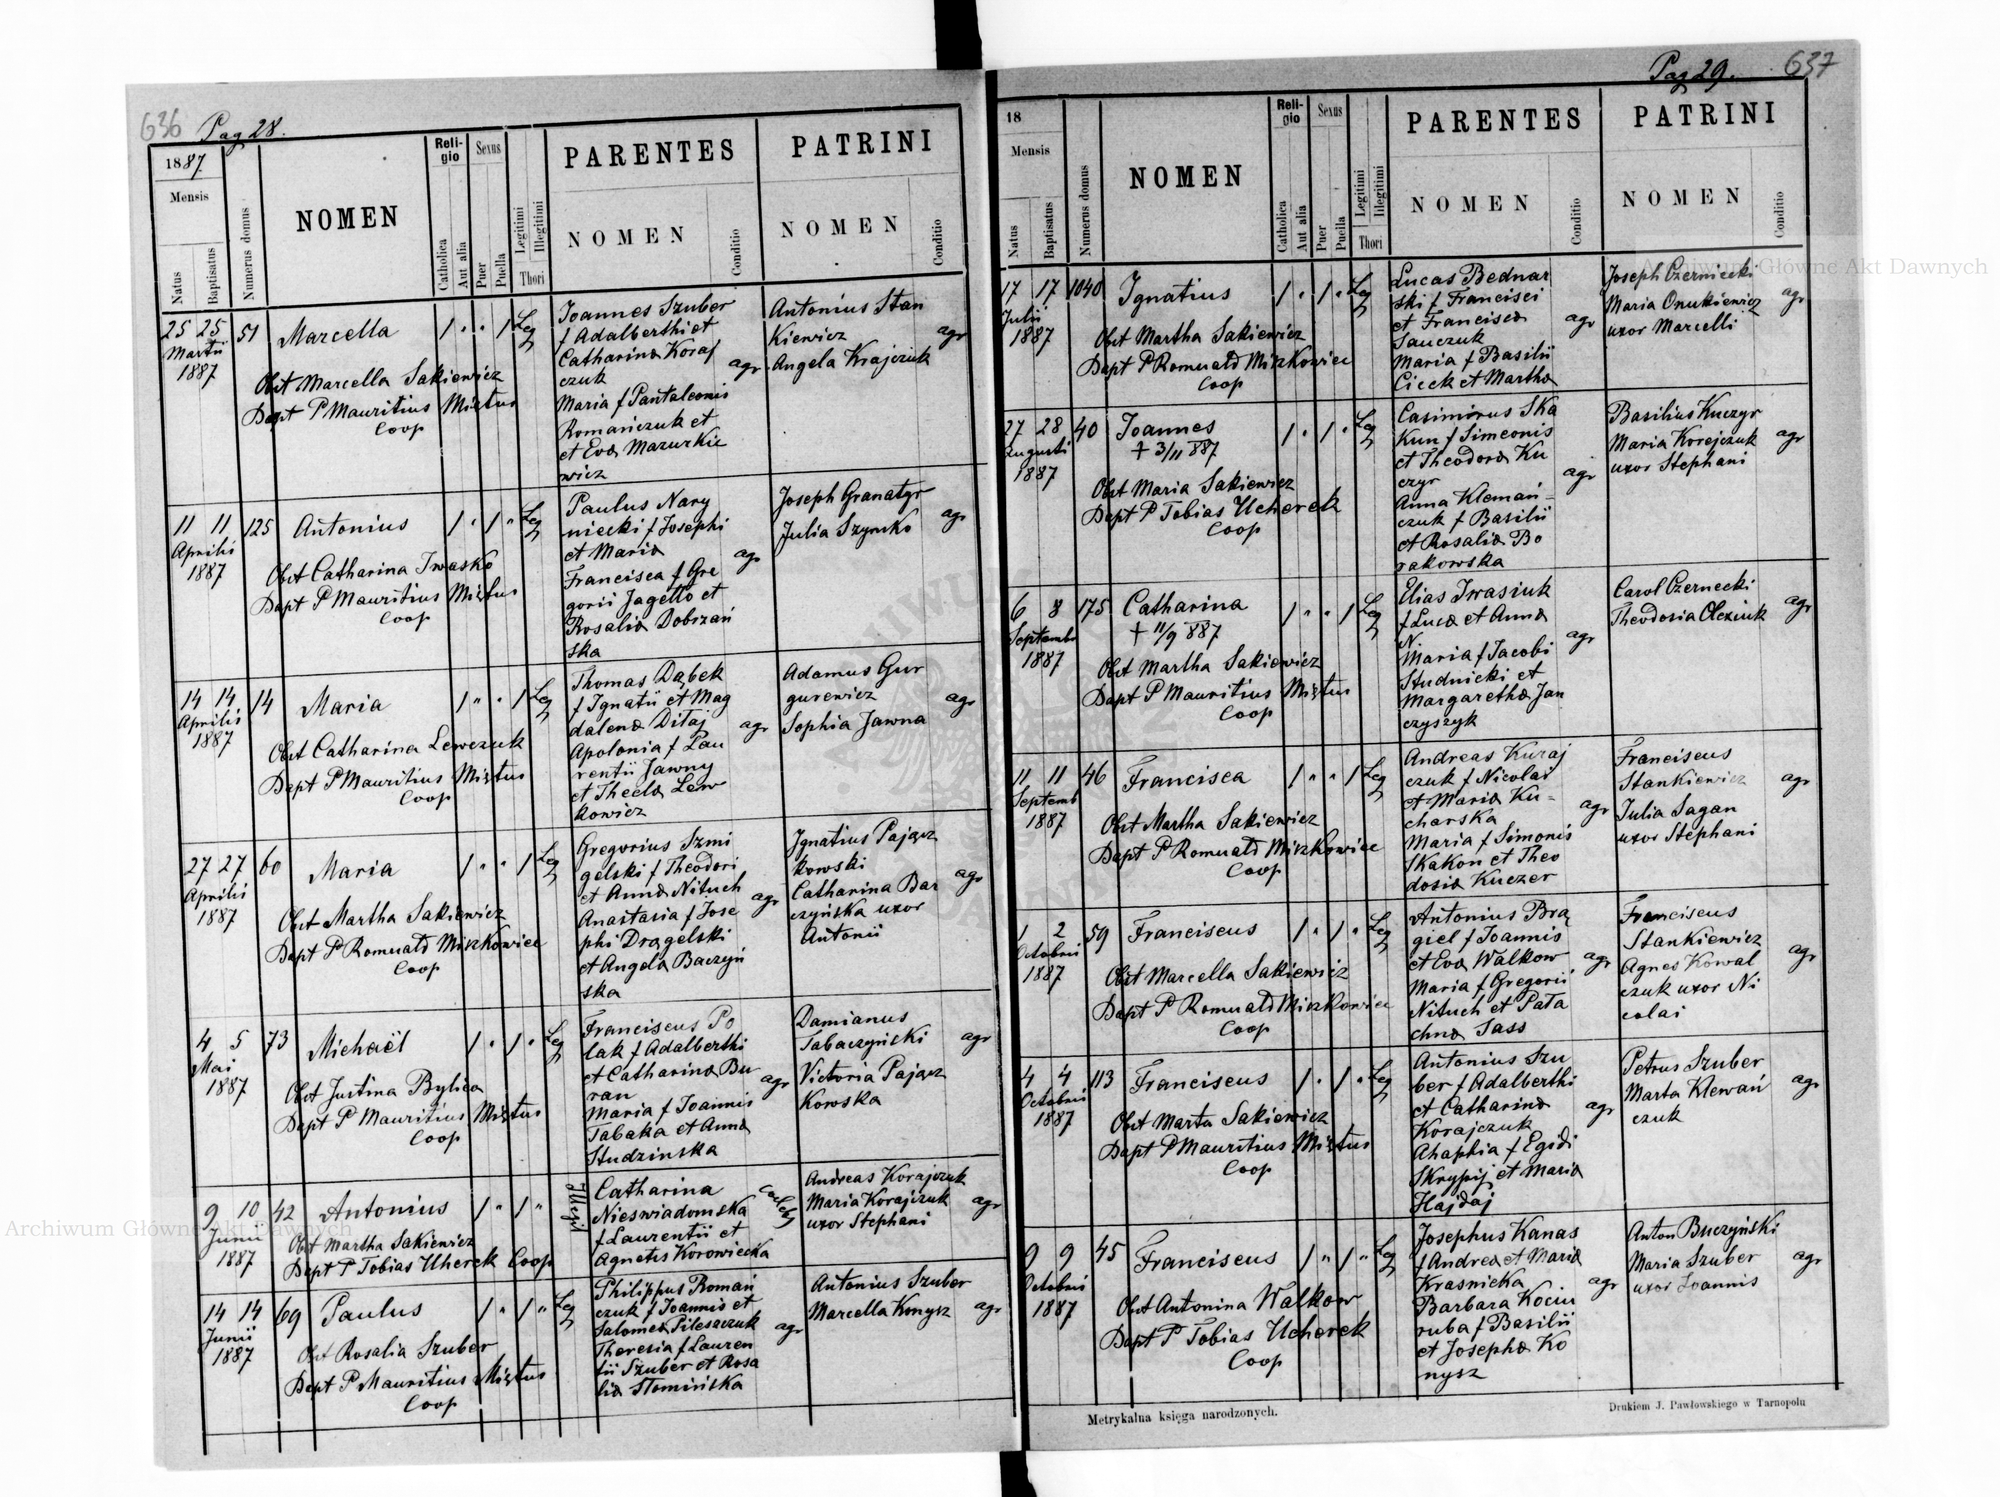 636 Pag 28.
1887
Mensis
Natus
Baptisatus
Numerus domus
NOMEN
Religio
Catholica
Aut alia
Sexus
Puer
Puella
Legitimi
Illegitimi
Thori
PARENTES
NOMEN
Conditio
PATRINI
NOMEN
Conditio
25 25 51 Marcella 1 " " 1 Leg
Martii
1887
Obst Marcella Sakiewicz
Bapt P Mauritius Mixtus
Coop
Joannes Szuber
f Adalberthi et
Catharina Koraj
czuk
Maria f Pantaleonis
Romańczuk et
et Eva Mazurkie
wicz
agr
Antonius Stan
Kiewicz
Angela Krajczuk
agr
11 11 125 Antonius 1 " 1 " Leg
Aprilis
1887
Obst Catharina Iwasko
Bapt P Mauritius Mixtus
Coop
Paulus Nary
niecki f Josephi
et Maria
Francisca f Gre
gorii Jagetto et
Rosalia Dobrzań
ska
agr
Joseph Granatyr
Julia Szymko
agr
14 14 14 Maria 1 " " 1 Leg
Aprilis
1887
Obst Catharina Lewczuk
Bapt P Mauritius Mixtus
Coop
Thomas Dąbek
f Ignatii et Mag
dalena Ditaj
Apolonia f Lau
rentii Jawny
et Thecla Lew
kowicz
agr
Adamus Gur
gurewicz
Sophia Jawna
agr
27 27 60 Maria 1 " " 1 Leg
Aprilis
1887
Obst Martha Sakiewicz
Bapt P Romuald Miszkowiec
Coop
Gregorius Szmi
gelski f Theodori
et Anna Nituch
Anastasia f Jose
phi Drągelski
et Angela Baczyń
ska
agr
Ignatius Pająsz
kowski
Catharina Bar
czyńska uxor
Antonii
agr
4 5 73 Michaël 1 " 1 " Leg
Mai
1887
Obst Justina Bylica
Bapt P Mauritius Mixtus
Coop
Franciscus Po
lak f Adalberthi
et Catharina Bu
ran
Maria f Joannis
Tabaka et Anna
Studzinska
agr
Damianus
Tabaczyński
Victoria Pająsz
Kowska
agr
9 10 42 Antonius 1 " 1 " Illegit
Junii
1887
Obst Martha Sakiewicz
Bapt P Tobias Uherek Coop
Catharina
Nieswiadomska
f Laurentii et
Agnetis Korowiecka
Andreas Korajczuk
Maria Korajczuk
uxor Stephani
agr
14 14 69 Paulus 1 " 1 " Leg
Junii
1887
Obst Rosalia Szuber
Bapt P Mauritius Mixtus
Coop
Philippus Roman
czuk f Joannis et
Salomea Pilesaczuk
Theresia f Lauren
tii Szuber et Rosa
lia Stomińska
agr
Antonius Szuber
Marcella Kmysz
agr
Pag 29. 637
18
Mensis
Natus
Baptisatus
Numerus domus
NOMEN
Religio
Catholica
Aut alia
Sexus
Puer
Puella
Legitimi
Illegitimi
Thori
PARENTES
NOMEN
Conditio
PATRINI
NOMEN
Conditio
17 17 1040 Ignatius 1 " 1 " Leg
Julii
1887
Obst Martha Sakiewicz
Bapt P Romuald Miszkowiec
Coop
Lucas Bednar
ski f Francisci
et Francisca
Sauczuk
Maria f Basilii
Cicek et Martha
agr
Joseph Czerniecki
Maria Onukiewicz
uxor Marcelli
agr
27 28 40 Joannes 1 " 1 " Leg
Augusti + 3/11 887
1887
Obst Maria Sakiewicz
Bapt P Tobias Ucherek
Coop
Casimirus Ska
Kun f Simeonis
et Theodora Ku
czyr
Anna Klemań-
czuk f Basilii
et Rosalia Bo
rakowska
agr
Basilius Kuczyr
Maria Korejczuk
uxor Stephani
agr
6 8 175 Catharina 1 " " 1 Leg
Septembr + 11/9 887
1887
Obst Martha Sakiewicz
Bapt P Mauritius Mixtus
Coop
Elias Iwasiuk
f Luca et Anna
N.
Maria f Jacobi
Studnicki et
Margaretha Jan
czyszyk
agr
Carol Czernecki
Theodosia Olexiuk
agr
11 11 46 Francisca 1 " " 1 Leg
Septemb
1887
Obst Martha Sakiewicz
Bapt P Romuald Miszkowiec
Coop
Andreas Kuraj
czuk f Nicolai
et Maria Ku-
charska
Maria f Simonis
Skakon et Theo
dosia Kuczer
agr
Franciscus
Stankiewicz
Julia Sagan
uxor Stephani
agr
1 2 59 Franciscus 1 " 1 " Leg
Octobris
1887
Obst Marcella Sakiewicz
Bapt P Romuald Miszkowiec
Coop
Antonius Brą
giel f Joannis
et Eva Walkow
Maria f Gregorii
Nituch et Pata
chna Sass
agr
Franciscus
Stankiewicz
Agnes Kowal
czuk uxor Ni
colai
agr
4 4 113 Franciscus 1 " 1 " Leg
Octobris
1887
Obst Marta Sakiewicz
Bapt P Mauritius Mixtus
Coop
Antonius Szu
ber f Adalberthi
et Catharina
Korajczuk
Ahaphia f Egidi
Skrypij et Maria
Hajdaj
agr
Petrus Szuber
Marta Klewań
czuk
agr
9 9 45 Franciscus 1 " 1 " Leg
Octobris
1887
Obst Antonina Walkow
Bapt P Tobias Ucherek
Coop
Josephus Kanas
f Andrea et Maria
Krasnicka
Barbara Kociu
ruba f Basilii
et Josepha Ko
nysz
agr
Anton Buczyński
Maria Szuber
uxor Joannis
agr
Metrykalna księga narodzonych.
Drukiem J. Pawłowskiego w Tarnopolu
Archiwum Główne Akt Dawnych
Archiwum Główne Akt Dawnych